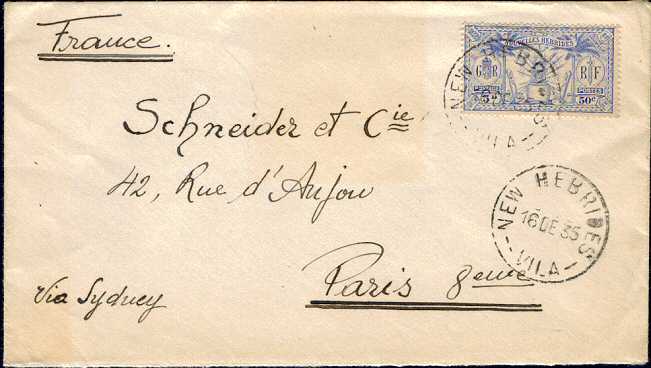 France.
NOUVELLES HEBRIDES
G R
R F
5d
50c
POSTES
NEW HEBRI
VILA
Schneider et Cie
42, Rue d'Anjou
Paris 8eme
Via Sydney
NEW HEBRIDES
16 DE 35
VILA